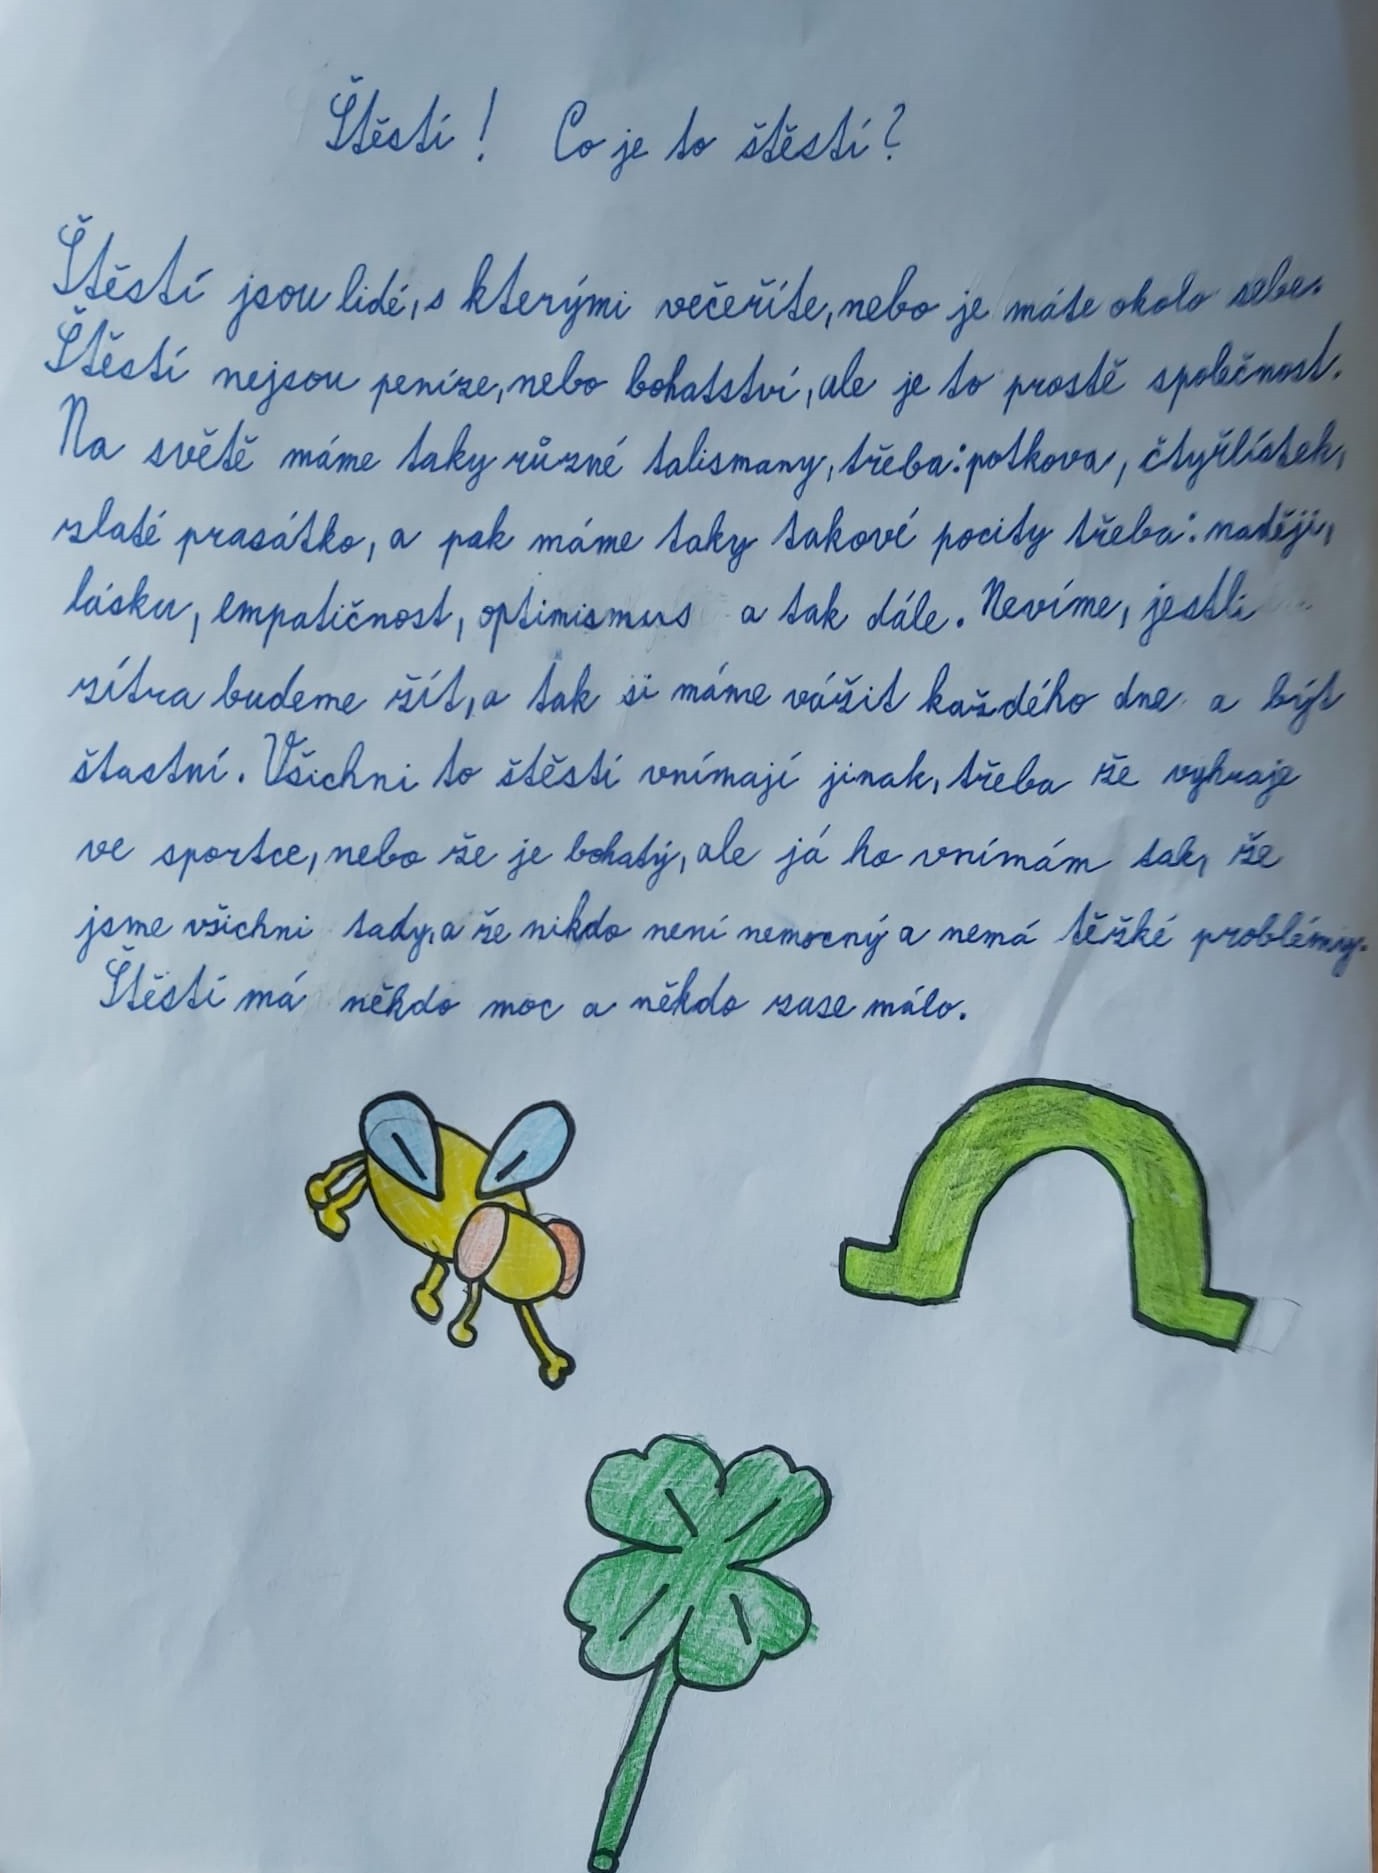 Štěstí! Co je to štěstí?
Štěstí jsou lidé, s kterými večeříte, nebo je máte okolo sebe.
Štěstí nejsou peníze, nebo bohatství, ale je to prostě společnost.
Na světě máme taky různé talismany, třeba: potkova, čtyřlístek,
zlaté prasátko, a pak máme taky takové pocity třeba: naději,
lásku, empatičnost, optimismus a tak dále. Nevíme, jestli
zítra budeme žít, a tak si máme vážit každého dne a být
štastní. Všichni to štěstí vnímají jinak, třeba že vyhraje
ve sportce, nebo že je bohatý, ale já ho vnímám tak, že
jsme všichni tady, a že nikdo není nemocný a nemá těžké problémy.
Štěstí má někdo moc a někdo zase málo.